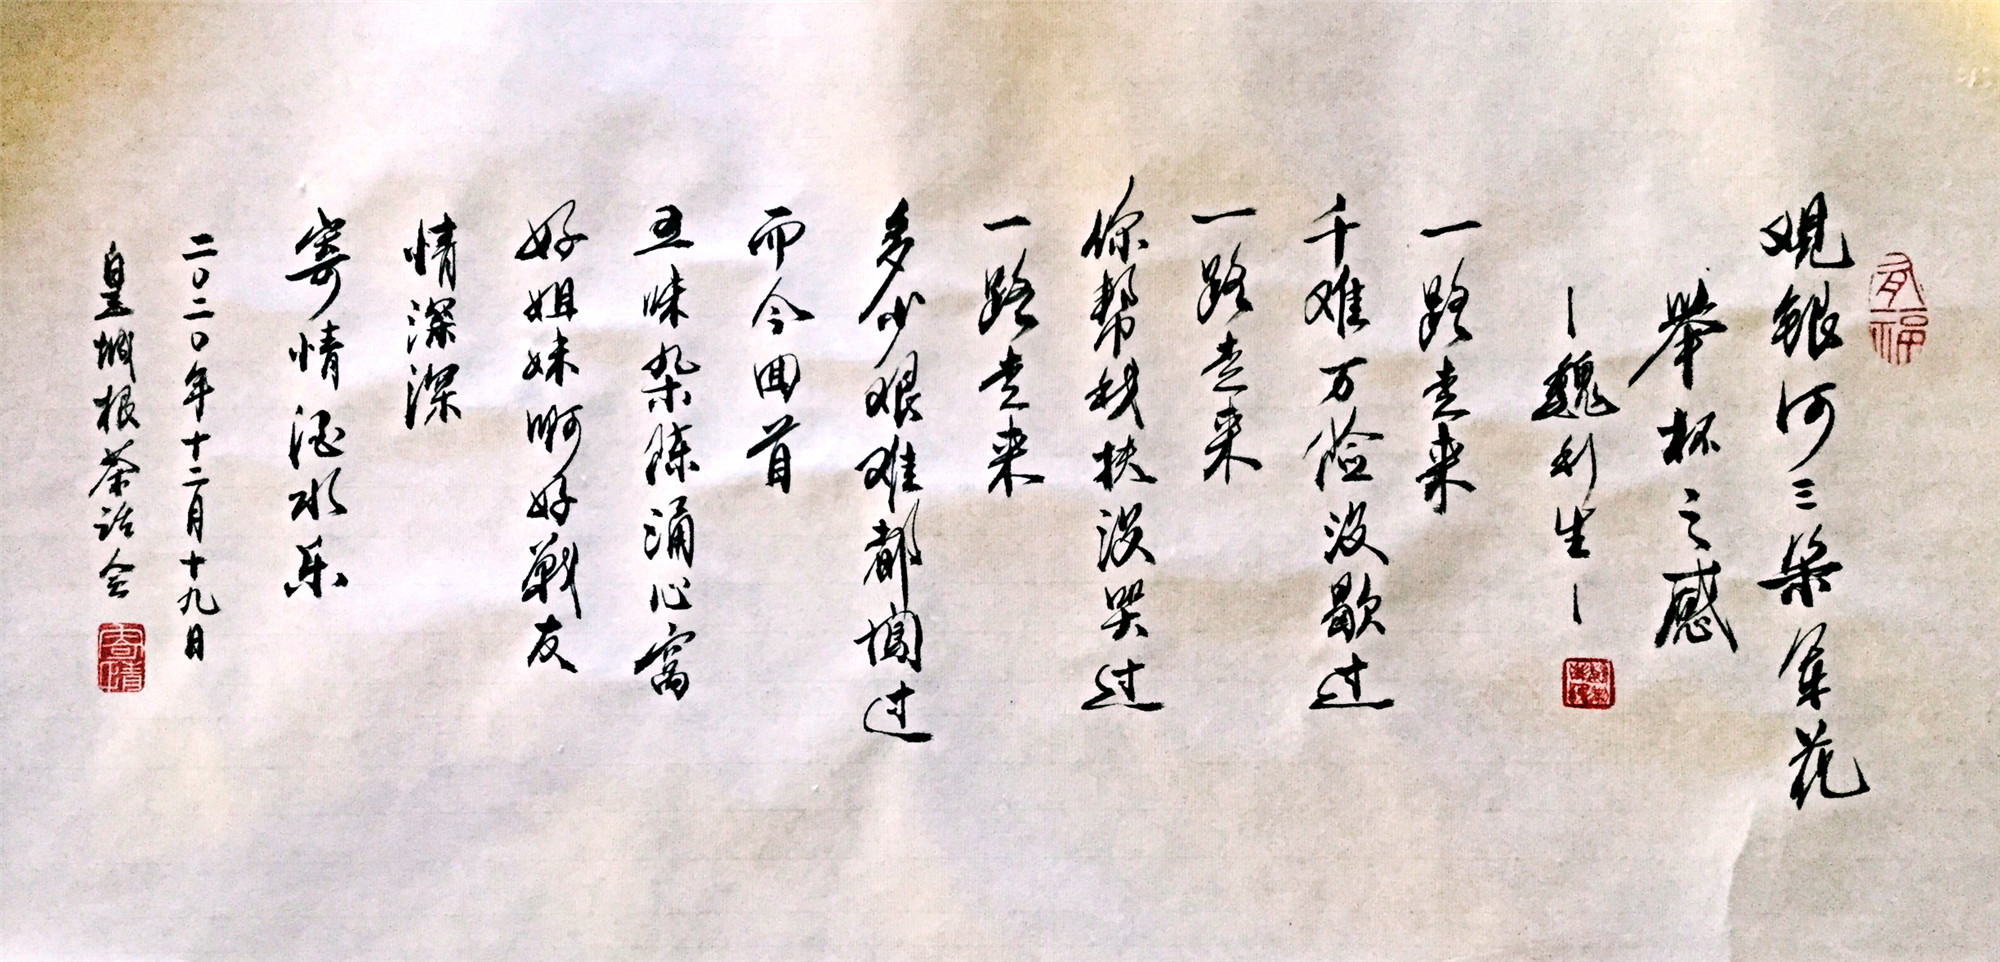 有福
观银河三朵军花
举杯之感
—魏利生—
一路走来
千难万险没歇过
一路走来
你帮我扶没哭过
一路走来
多少艰难都闯过
而今回首
五味杂陈涌心窝
好姐妹啊好战友
情深深
寄情酒水乐
二〇二〇年十二月十九日
皇城根茶话会
寄情